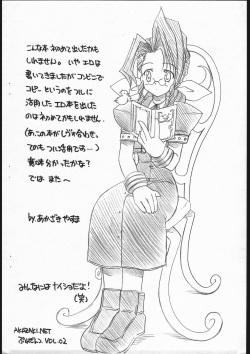 こんな本 初めて出したかも
しれません。いや エロは
書いてきましたが コンビニで
コピーというのを フルに
活用した エロ本を出した
のは初めてかもしれません。
(あ、この本が
でも フル活用です…)
意味分かったかな?
では また～
by.あかざきやすま
みんなには ナイショだよ!
(笑)
AKAZAKI.NET
VOL.02